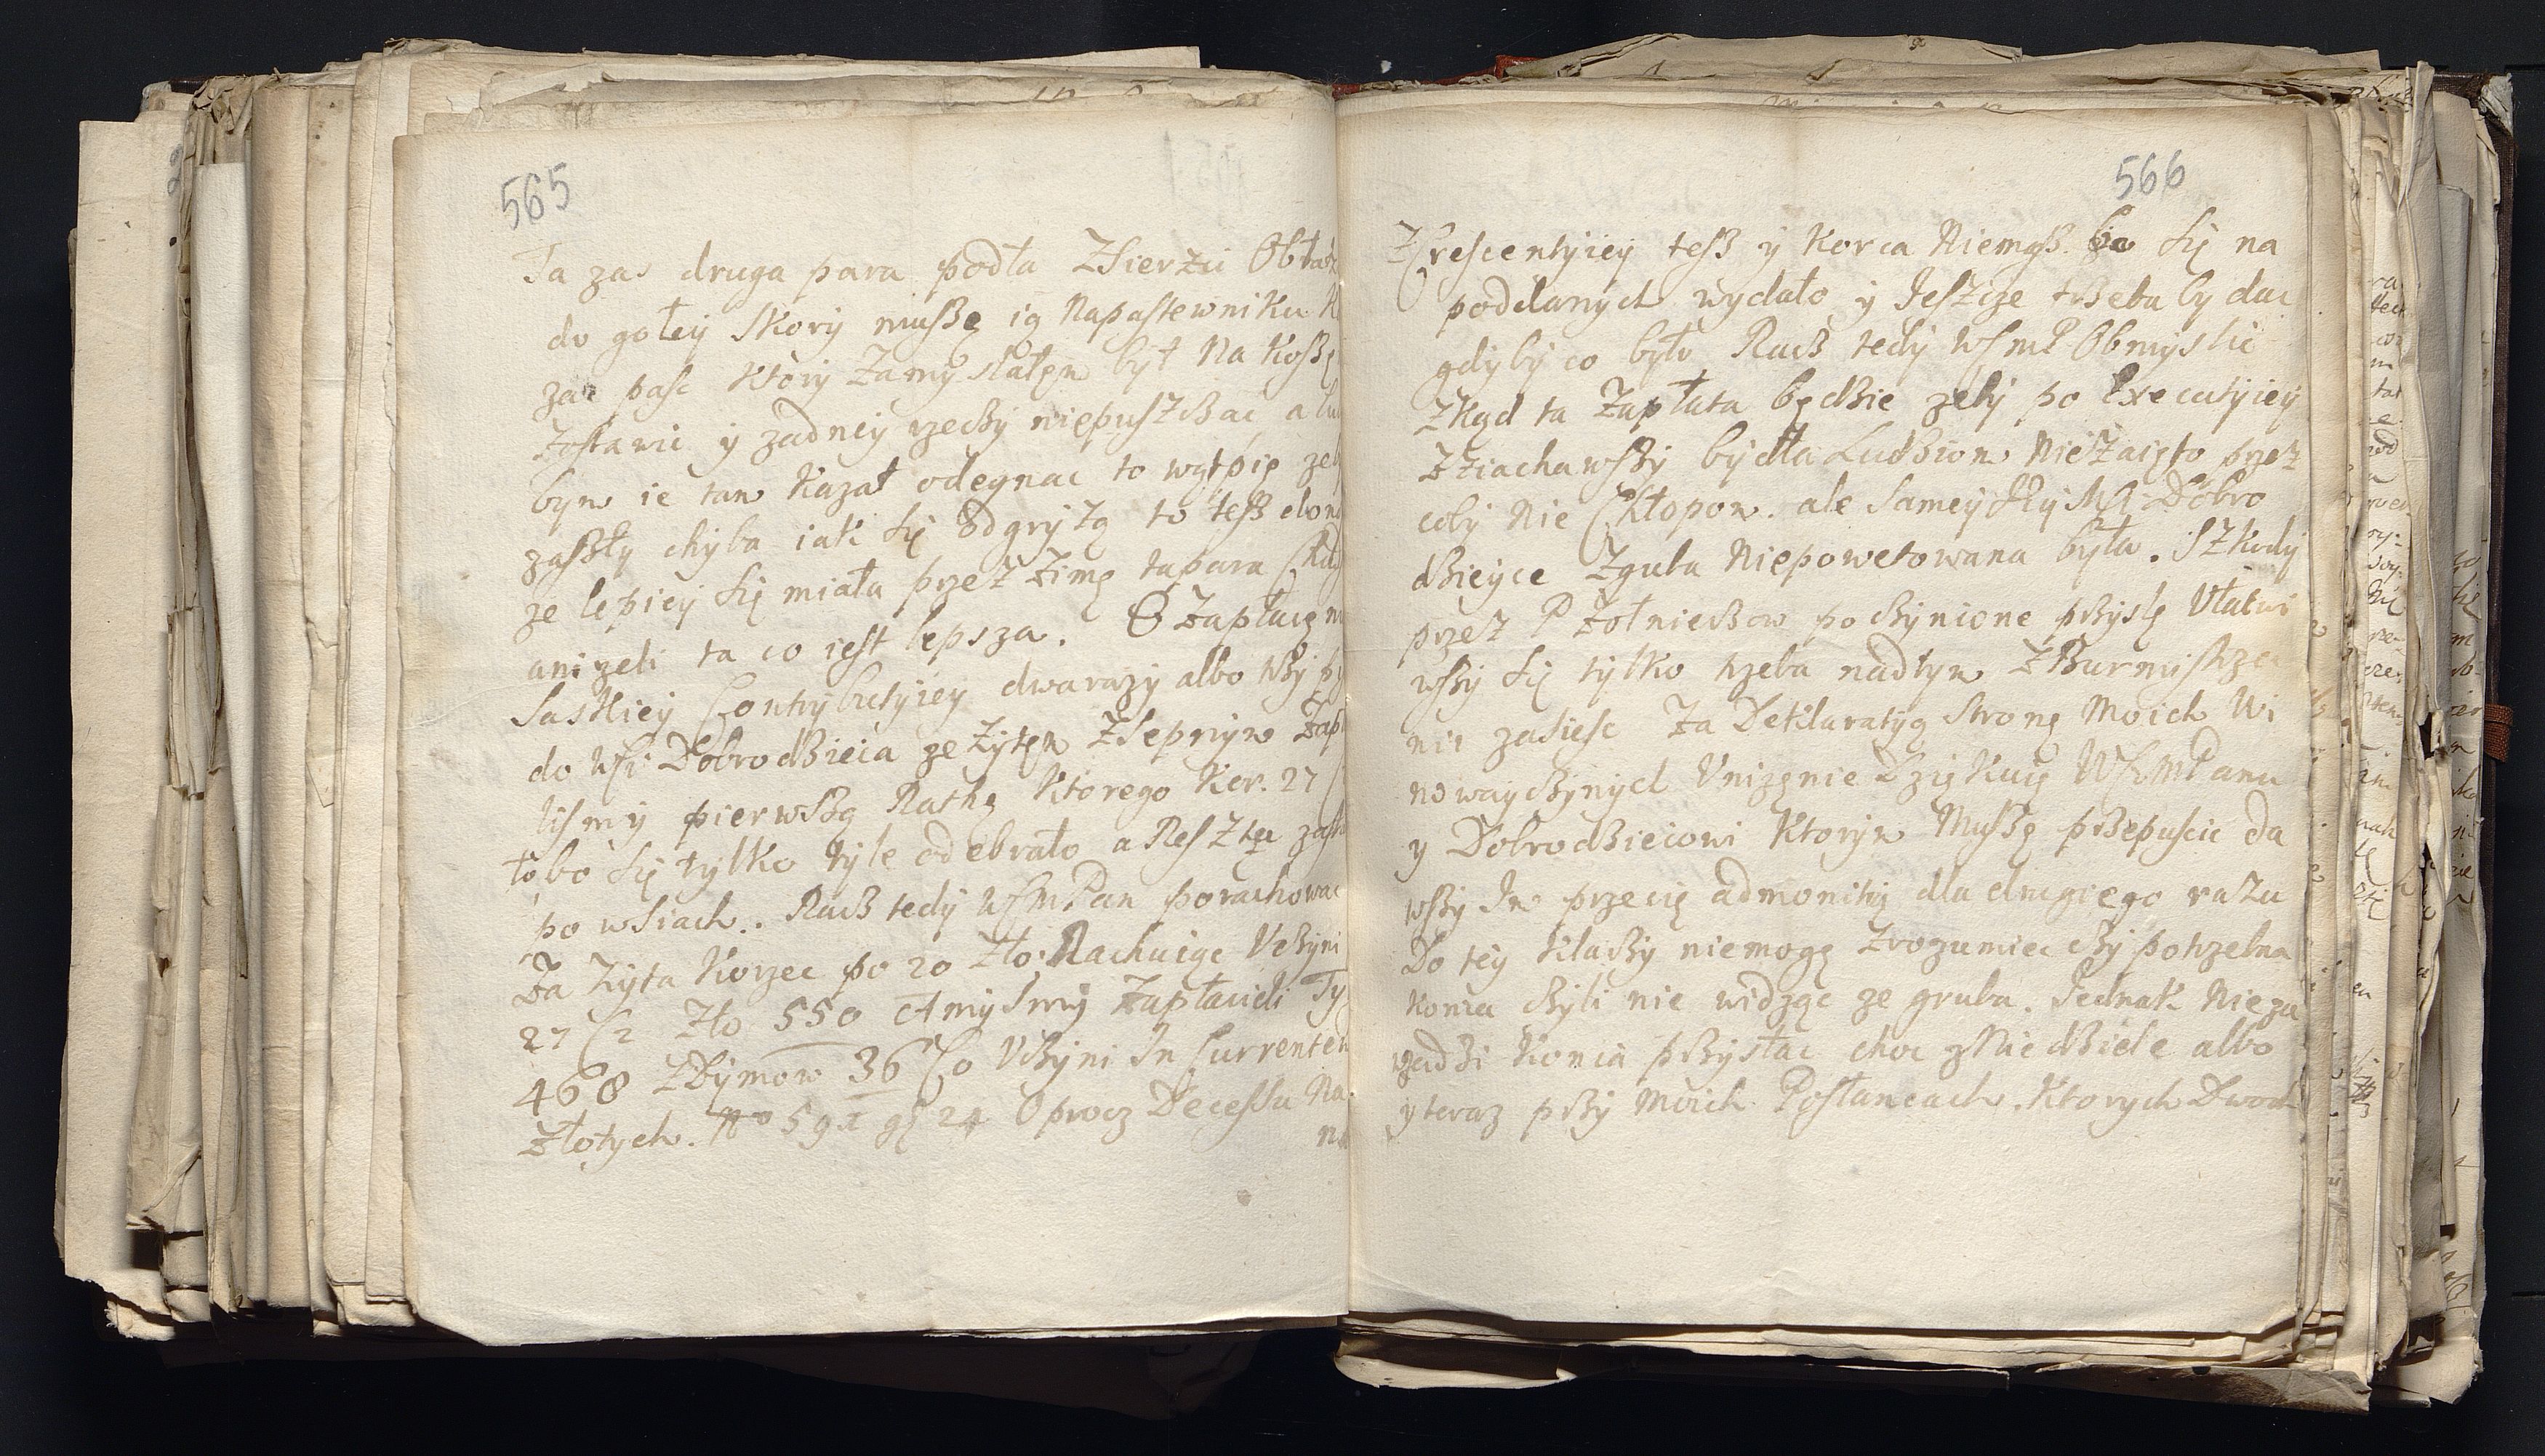 565
Ta zas druga para podła Zsierzci Obłaz
do gołey Skory muszę ią Napastewniku
zac pasc Ktory Zamyslałem był Na Koszę
Zostawic y zadney rzeczy niepuszczac a
bym ie tam Kazał odegnac to wątpię zeb
zaszły chyba iak się odgryzą to tesz
ze lepiey się miała przez zimę tapara
anizeli ta co iest lepsza. O zapłacę
Saskiey Contrybutyiey dwarazy albo trzy
do WSi Dobrodzieia zeżytem Zsepnym Zap
lismy pierwszą Rathę Ktorego Kor. 27
to bo się tylko tyle odebrało a Resztę zast
po wsiach.. Racz tedy WSMPan porachowac
Za Zyta Korzec po 20 Zło. Rachuiąc Vczyni
27 Zło 550 A mysmy Zapłacili Ty
468 ZDymow 36 Co Vczyni In Currenten
Złotych. No 591 gs 24 Oprocz Decessu Na
566
ZCrescentyiey tesz y Korca Niemasz. bo się na
poddanych wydało y Jeszcze trzeba by dac
gdyby co było Racz tedy WSMP Obmyslic
Zkąd ta Zapłata będzie zeby po Executyiey
Zziachawszy bydła Ludziom Niezaięto przez
coby Nie Chłopom. ale Samey JEy Mci Dobro
dzieyce Zguba Niepowetowana była. Szkody
przez P Zołnieszow poczynione przysłę Vłatwi
wszy się tylko trzeba nadtym ZBurmistrza
mi zasiesc Za Deklaratyą Stronę Moich Wi
nowayczynych Vnizenie Dziękuię WSMPanu
y Dobrodzieiowi Ktorym Muszę przepuscic da
wszy Im przecię admonitią dla drugiego razu
Do tey Klaczy niemogę Zrozumiec czy potrzebna
Konia czyli nie widząc ze gruba. Jednak Nieza
wadzi Konia przysłac choc zNiedziele albo
y teraz przy Moich Posłancach. Ktorych Dwoch